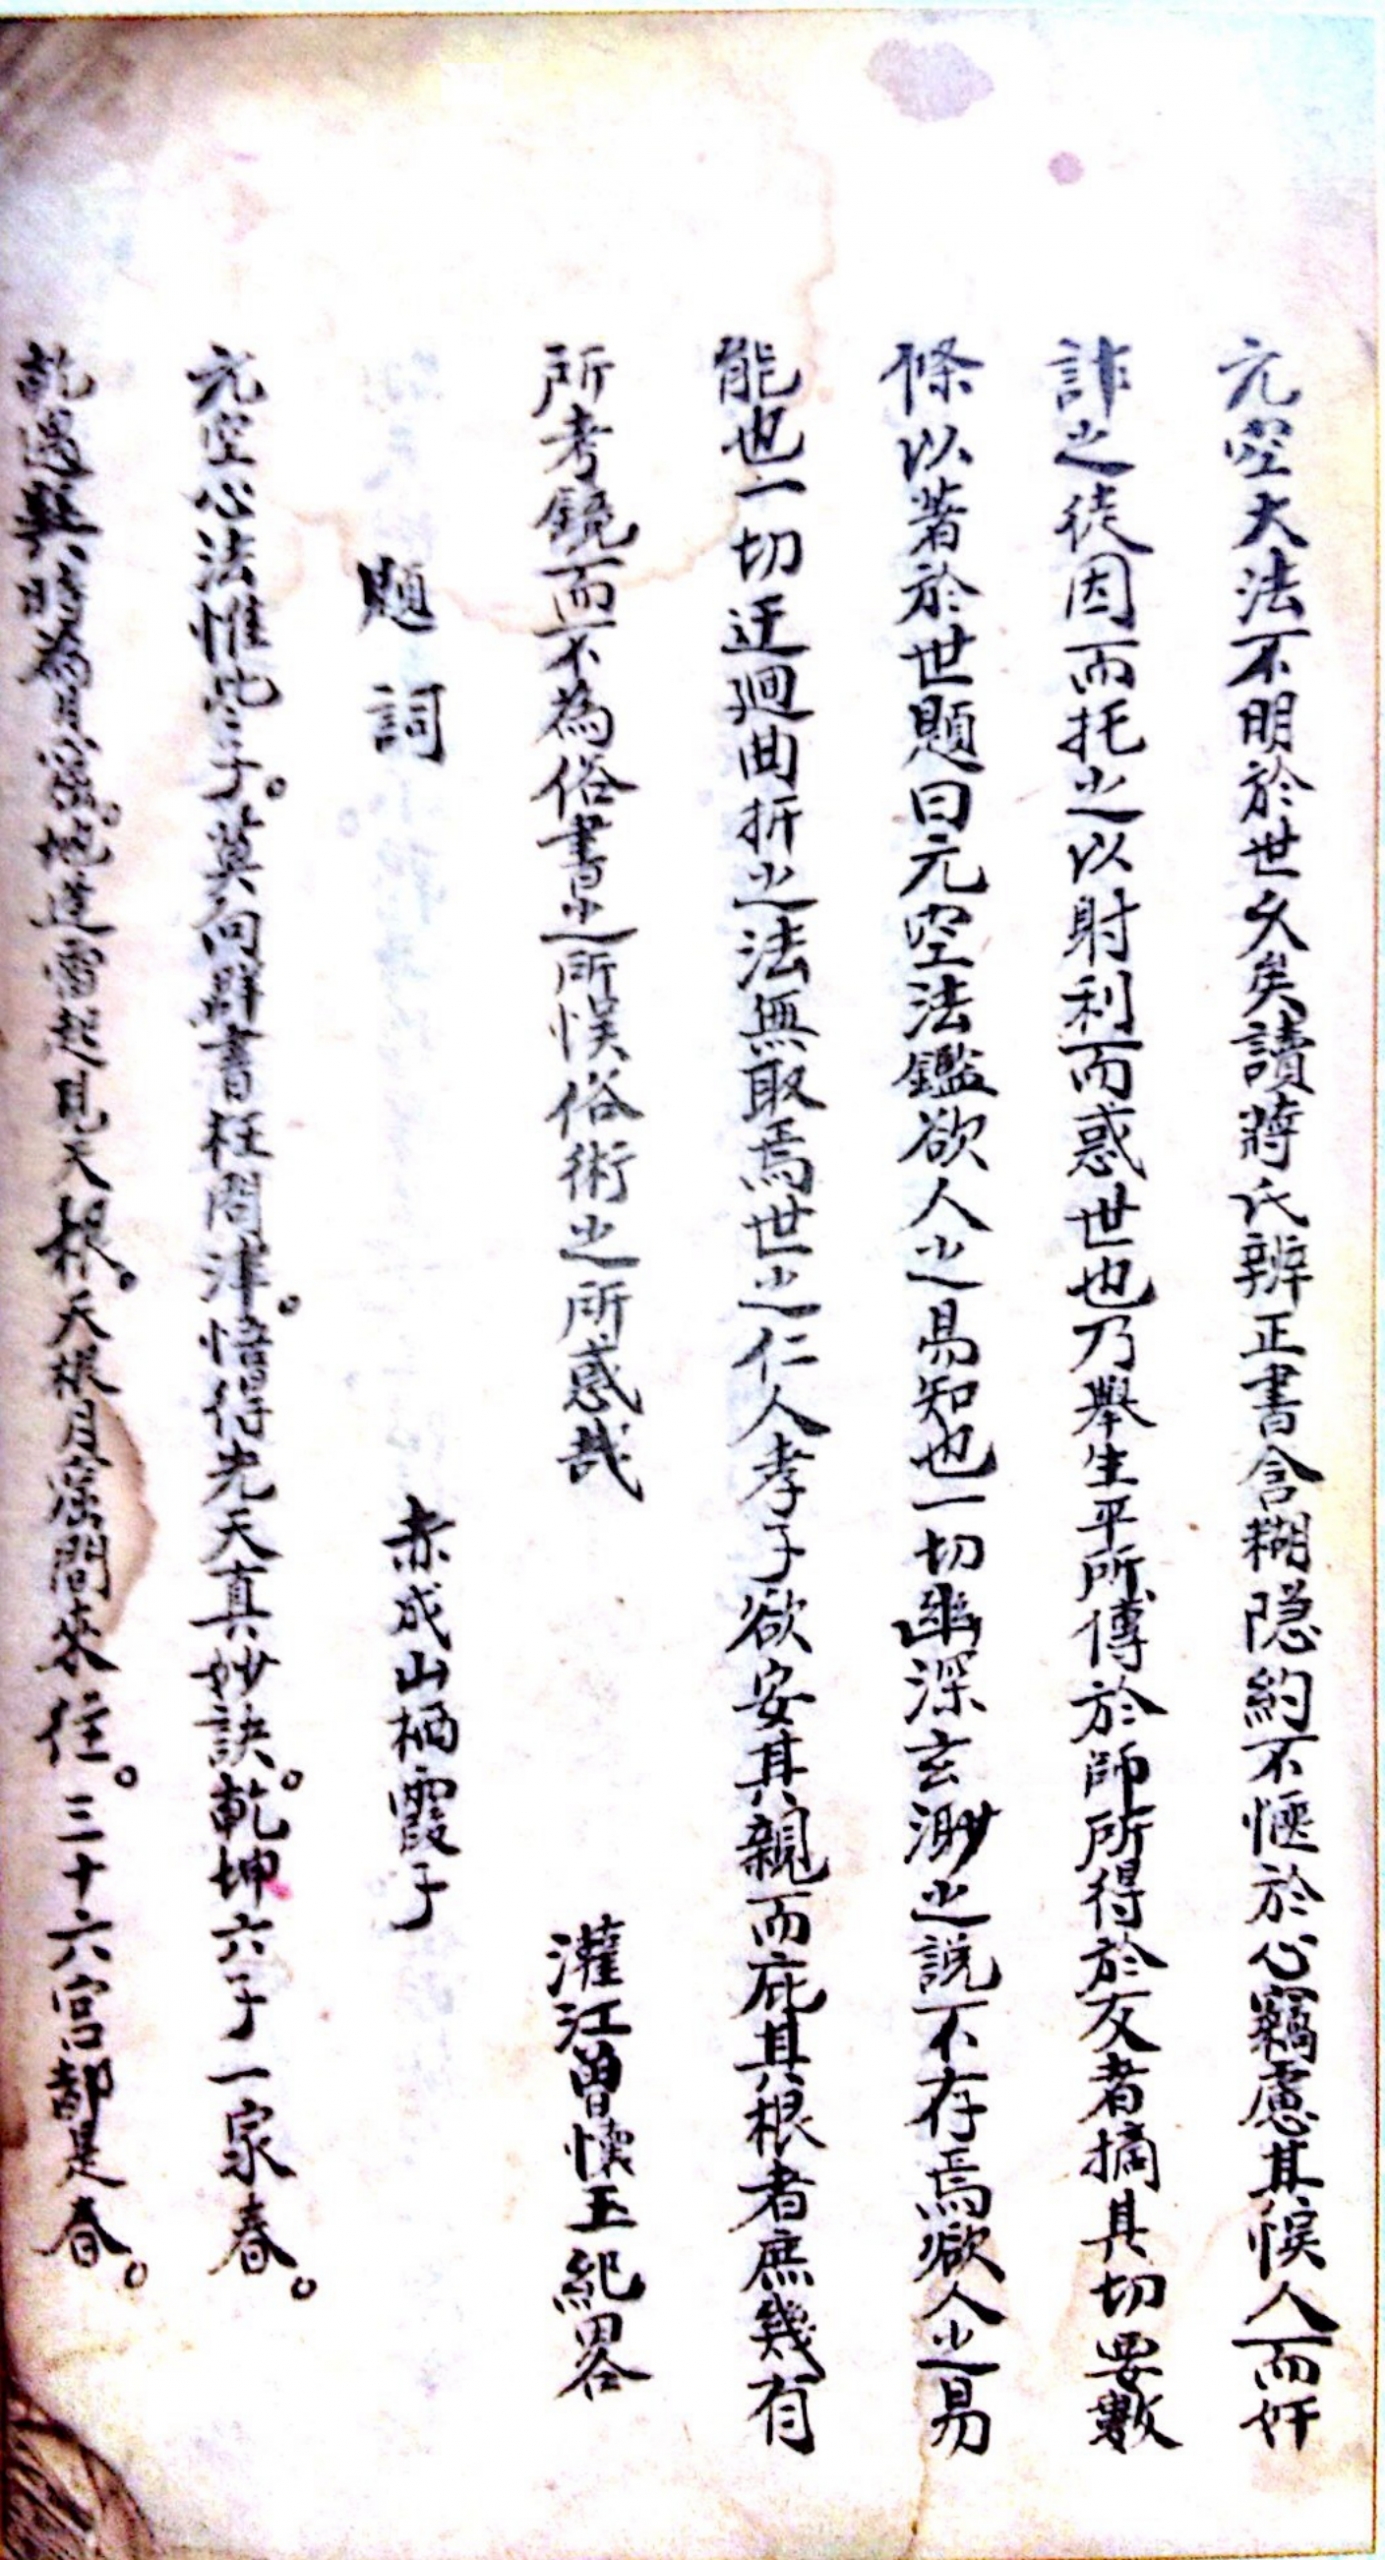 元空大法不明於世久矣讀蔣氏辨正書含糊隐約不愜於心竊慮其悞人而奸
詐之徒因而托之以射利而惑世也乃舉生平所傳於師所得於友者摘其切要數
條以著於世題曰元空法鑑欲人之易知也一切幽深玄渺之説不存焉欲人之易
能也一切迂廻曲折之法無取焉世之仁人孝子欲安其親而庇其根者庶幾有
所考鏡而不為俗書之所悞俗術之所惑哉
灌江曾懷玉紀畧
題詞
赤成山栖霞子
元空心法惟子。莫向群書枉問津。悟得先天真妙訣。乾坤六子一家春。
乾遇巽時為月窟。地逢雷起見天根。天根月窟間來往。三十六宮都是春。